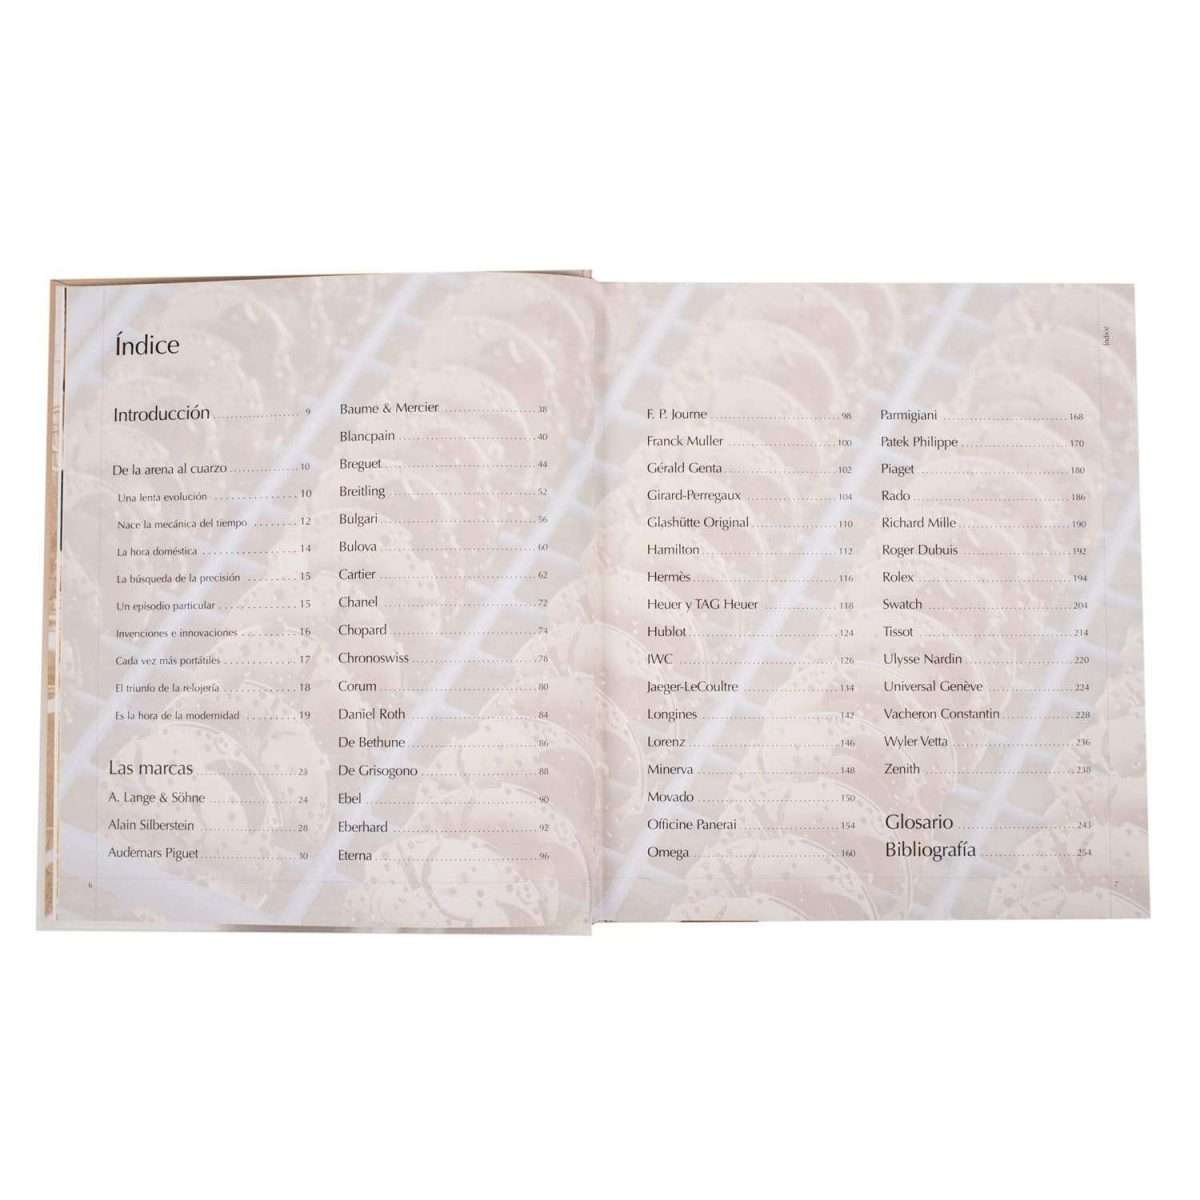 Índice
Introducción 9
De la arena al cuarzo 10
Una lenta evolución 10
Nace la mecánica del tiempo 12
La hora doméstica 14
La búsqueda de la precisión 15
Un episodio particular 15
Invenciones e innovaciones 16
Cada vez más portátiles 17
El triunfo de la relojería 18
Es la hora de la modernidad 19
Las marcas 23
A. Lange & Söhne 24
Alain Silberstein 28
Audemars Piguet 30
Baume & Mercier 38
Blancpain 40
Breguet 44
Breitling 52
Bulgari 56
Bulova 60
Cartier 62
Chanel 72
Chopard 74
Chronoswiss 78
Corum 80
Daniel Roth 84
De Bethune 86
De Grisogono 88
Ebel 90
Eberhard 92
Eterna 96
6
Índice
F. P. Journe 98
Franck Muller 100
Gérald Genta 102
Girard-Perregaux 104
Glashütte Original 110
Hamilton 112
Hermès 116
Heuer y TAG Heuer 118
Hublot 124
IWC 126
Jaeger-LeCoultre 134
Longines 142
Lorenz 146
Minerva 148
Movado 150
Officine Panerai 154
Omega 160
Parmigiani 168
Patek Philippe 170
Piaget 180
Rado 186
Richard Mille 190
Roger Dubuis 192
Rolex 194
Swatch 204
Tissot 214
Ulysse Nardin 220
Universal Genève 224
Vacheron Constantin 228
Wyler Vetta 236
Zenith 238
Glosario 243
Bibliografía 254
7